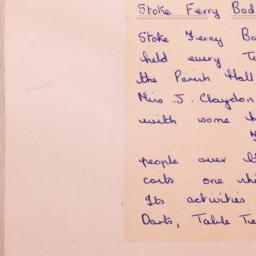 Stoke Ferry Bad
Stoke Ferry Ba
held every T
the Parish Hall
Miss J. Claydon
with some h
people over
costs one shi
Its activities
Darts, Table Te